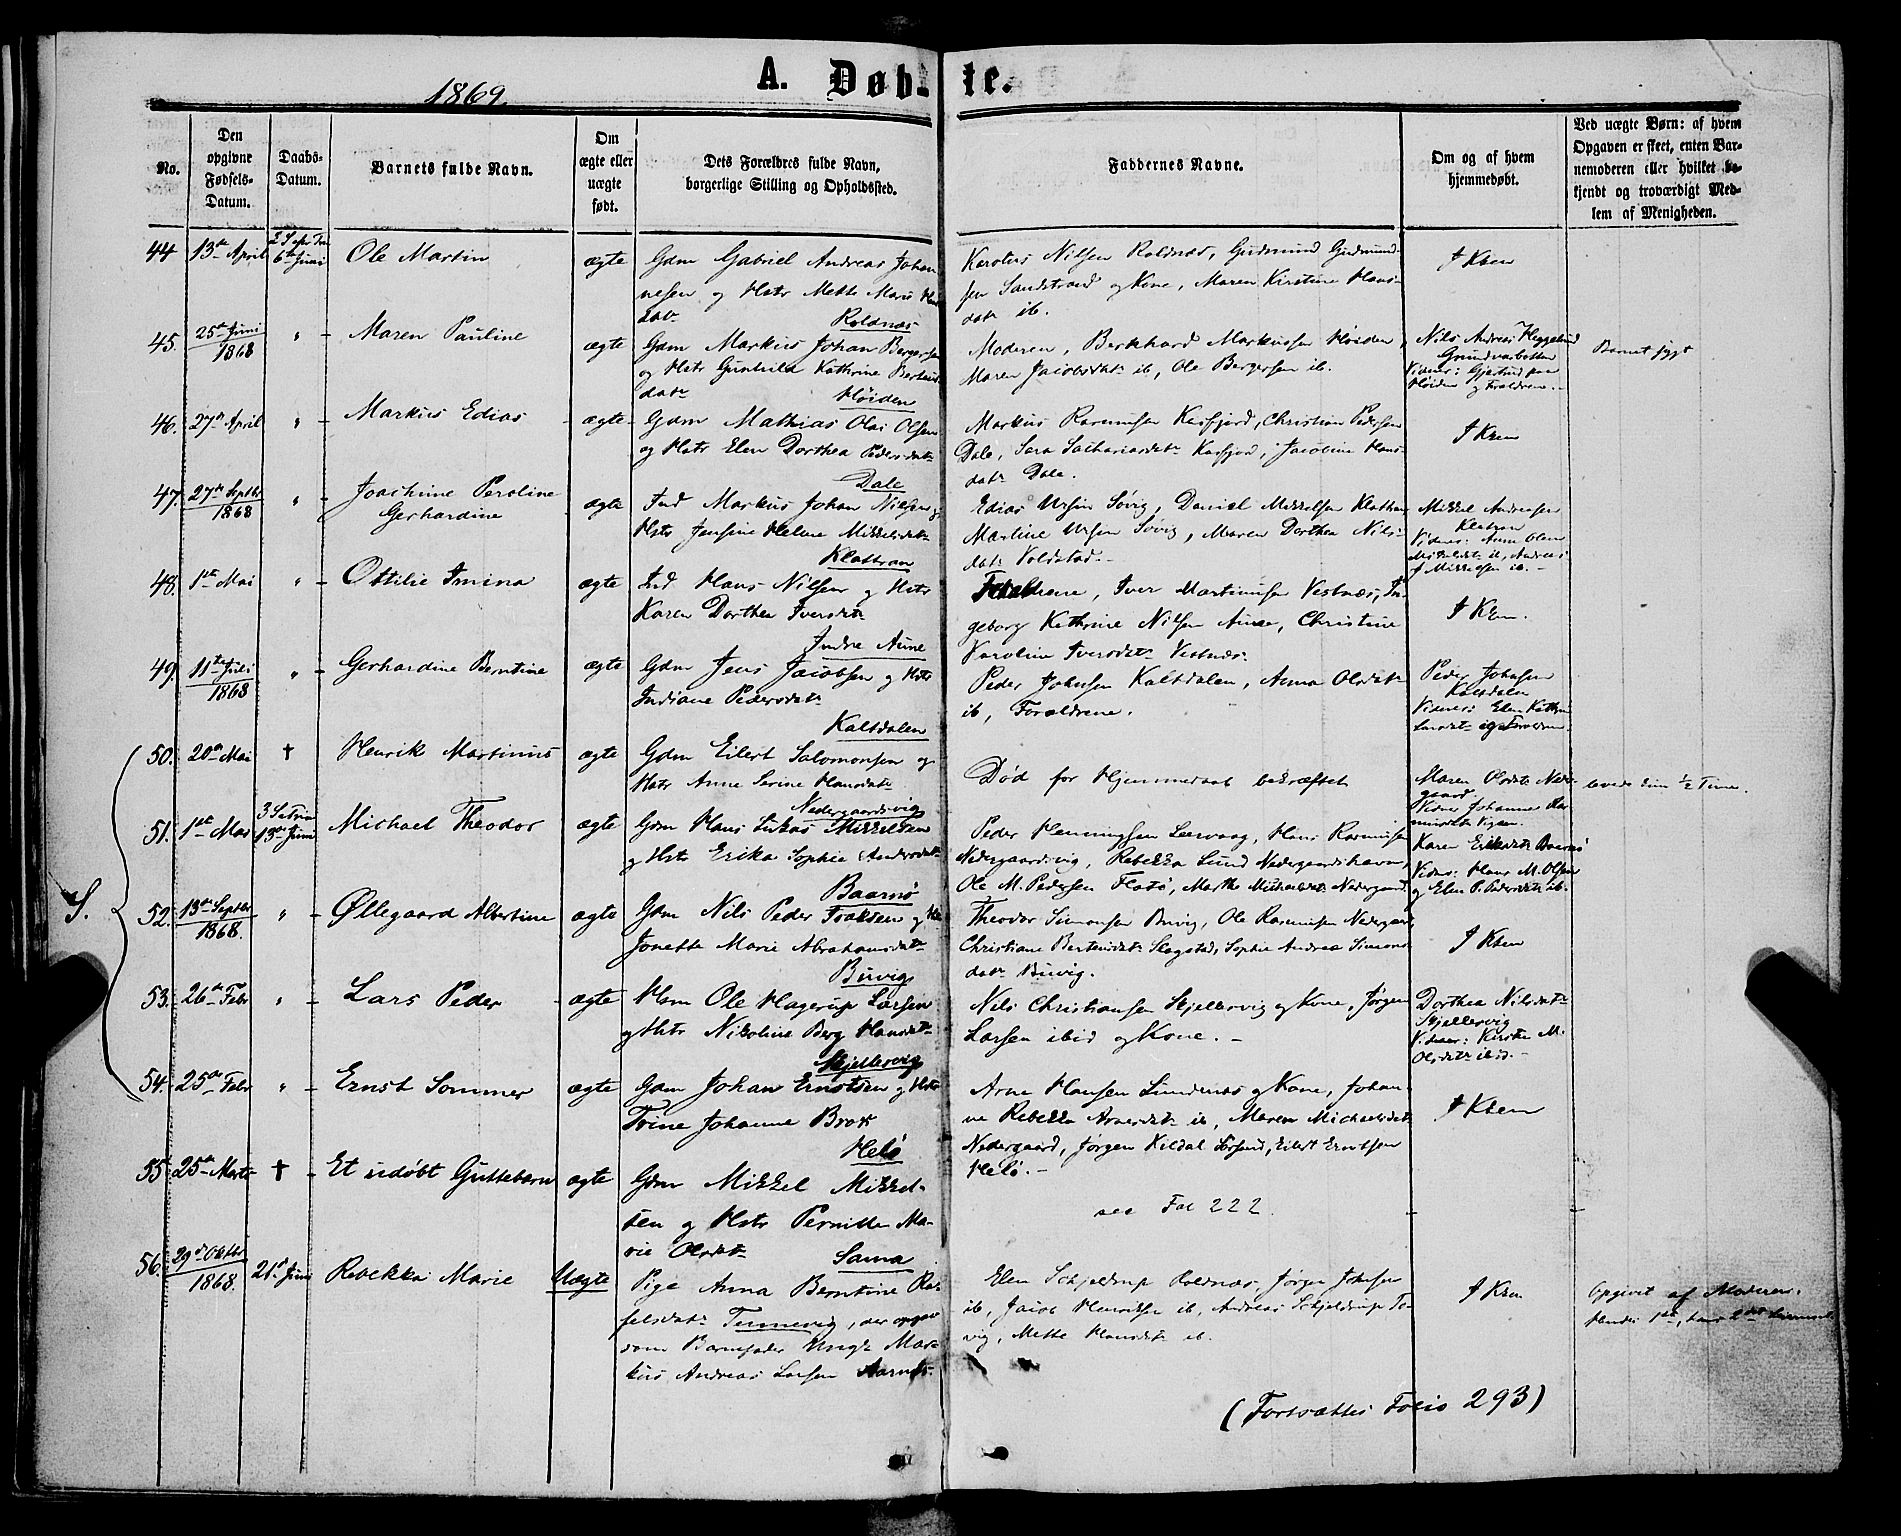 1869.
A. Døbte.
No.
Den opgivne Fødsels-Datum.
Daabs-Datum.
Barnets fulde Navn.
Om ægte eller uægte født.
Dets Forældres fulde Navn, borgerlige Stilling og Opholdssted.
Faddernes Navne.
Om og af hvem hjemmedøbt.
Ved uægte Børn: af hvem Opgaven er skeet, enten Barnemoderen eller hvilket bekjendt og troværdigt Medlem af Menigheden.
44 13de April 6te Juni Ole Martin ægte
Gdm Gabriel Andreas Johan
nesen og Hstr Mette Marie
datr Roldnæs
Karolus Nilsen Roldnæs, Gudmund Gudmund-
sen Sandstrand og Kone, Maren Kirstine Hans-
datr ib.
I Kken
45. 25de Juni 1868 " - Maren Pauline ægte
Gdm Markus Johan Bergersen
og Hstr Gunhild Kathrine
datr Høiden
Moderen, Berkhard Markussen Høiden,
Maren Jacobsdatr ib, Ole Bergersen ib.
Nils Andreas Heggelund
Høiden og Forældrene.
Barnet sygt
46. 27de April " - Markus Edias - ægte
Gdm Mathias Olai Olsen
og Hstr Elen Dorthea Pedersdatr
Dale
Markus Rasmusen Kasfjord, Christian Pedersen
Dale, Sara Sachariasdatr Kasfjord, Jacobine Hans-
datr Dale.
I Kken
47. 27de Septbr 1868 " - Joachime Peroline
Gerhardine ægte
Ind Markus Johan Nilsen og
Hstr Jensine Helene Mikkelsdatr
Klattran
Edias Ursin Søvig, Daniel Mikkelsen Klattran
Martine Ursin Søvig, Maren Dorthea Nils-
datr Voldstad.-
Mikkel Andreasen
Klattran
48. 1ste Mai " - Ottilie Imina ægte
Ind Hans Nilsen og Hstr
Karen Dorthea Iversdatr
Indre Aune
Forældrene, Iver Martinusen Vestnæs, In-
geborg Kathrine Nilsen Aune, Christine
Karoline Iversdatr Vestnæs.
I Kken.
49. 11te Juli 1868 " - Gerhardine Berntine ægte
Gdm Jens Jacobsen og Hstr
Indiane Pedersdatr
Kaltdalen
Peder Johnsen Kaltdalen, Anna Olsdatr
ib, Forældrene.
Peder Johnsen
Kaltdalen
S.
50. 20de Mai † Henrik Martinus ægte
Gdm Eilert Salomonsen og
Hstr Anne Serine Hansdatr
Nedergaardsvig
Død før Hjemmedaab bekræftet
Maren Olsdatr Neder-
gaard.
levede kun ½ Time.
51. 1ste Mai 13de Juni Michael Theodor ægte
Gdm Hans Lukas Mikkelsen
og Hstr Erika Sophie Andersdatr
Baarnø
Peder Henningsen Leervaag, Hans Rasmusen
Nedergaardsvig, Rebekka Lund Nedergaardshavn,
Ole M. Pedersen Flatø, Marthe Michaelsdatr Nedergaard.
Karen Eriksdatr Baarnø
Vidner: Hans M. Olsen
og Elen P. Pedersdatr ib.
52. 13de Septbr 1868. " - Øllegaard Albertine ægte
Gdm Nils Peder Isaksen og
Jonette Marie Abrahamsdatr
Buvig
Theodor Simonsen Buvig, Ole Rasmusen Nedergaard
Christiane Berteusdatr Slagstad, Sophie Andrea Simons
datr Buvig.
I Kken
53. 26de Febr " - Lars Peder - ægte
Hsm Ole Hagerup Larsen
og Hstr Nikoline Berg Hansdatr
Skjellesvig
Nils Christiansen Skjellesvig og Kone, Jørgen
Larsen ibid og Kone. -
Dorthea Nilsdatr
Skjellesvig
Vidner: Kirstie M.
Olsdatr ibid. -
54. 25de Febr " - Ernst Sommer ægte
Gdm Johan Ernstsen og Hstr
Trine Johanne Brox
Helø
Arne Hansen Lundenæs og Kone, Johan-
ne Rebekka Arnesdatr ib, Maren Michaelsdatr
Nedergaard, Jørgen Kildal, Eilert Erntsen
Helø. -
I Kken
55. 25de Marts † - Et udøbt Guttebarn ægte
Gdm Mikkel Mikkel-
sen og Hstr Pernille Ma-
rie Olsdatr Sama
see Fol 222.
56. 29de Oktbr 1868. 21de Juni Rebekka Marie Uægte
Pige Anna Berntine Ra-
felsdatr Tennevig, der opgav
som Barnefader Ungk Mar-
kus Andreas Larsen Aarnæs.
Elen Schjeldrup Roldnæs, Jørgen Johnsen
ib, Jacob Henriksen ib, Andreas Schjeldrup Te-
vig, Mette Hansdatr ib.
I Kken
Opgivet af Moderen.
Hendes 1ste, hans 2det
(Fortsættes Folio 293)